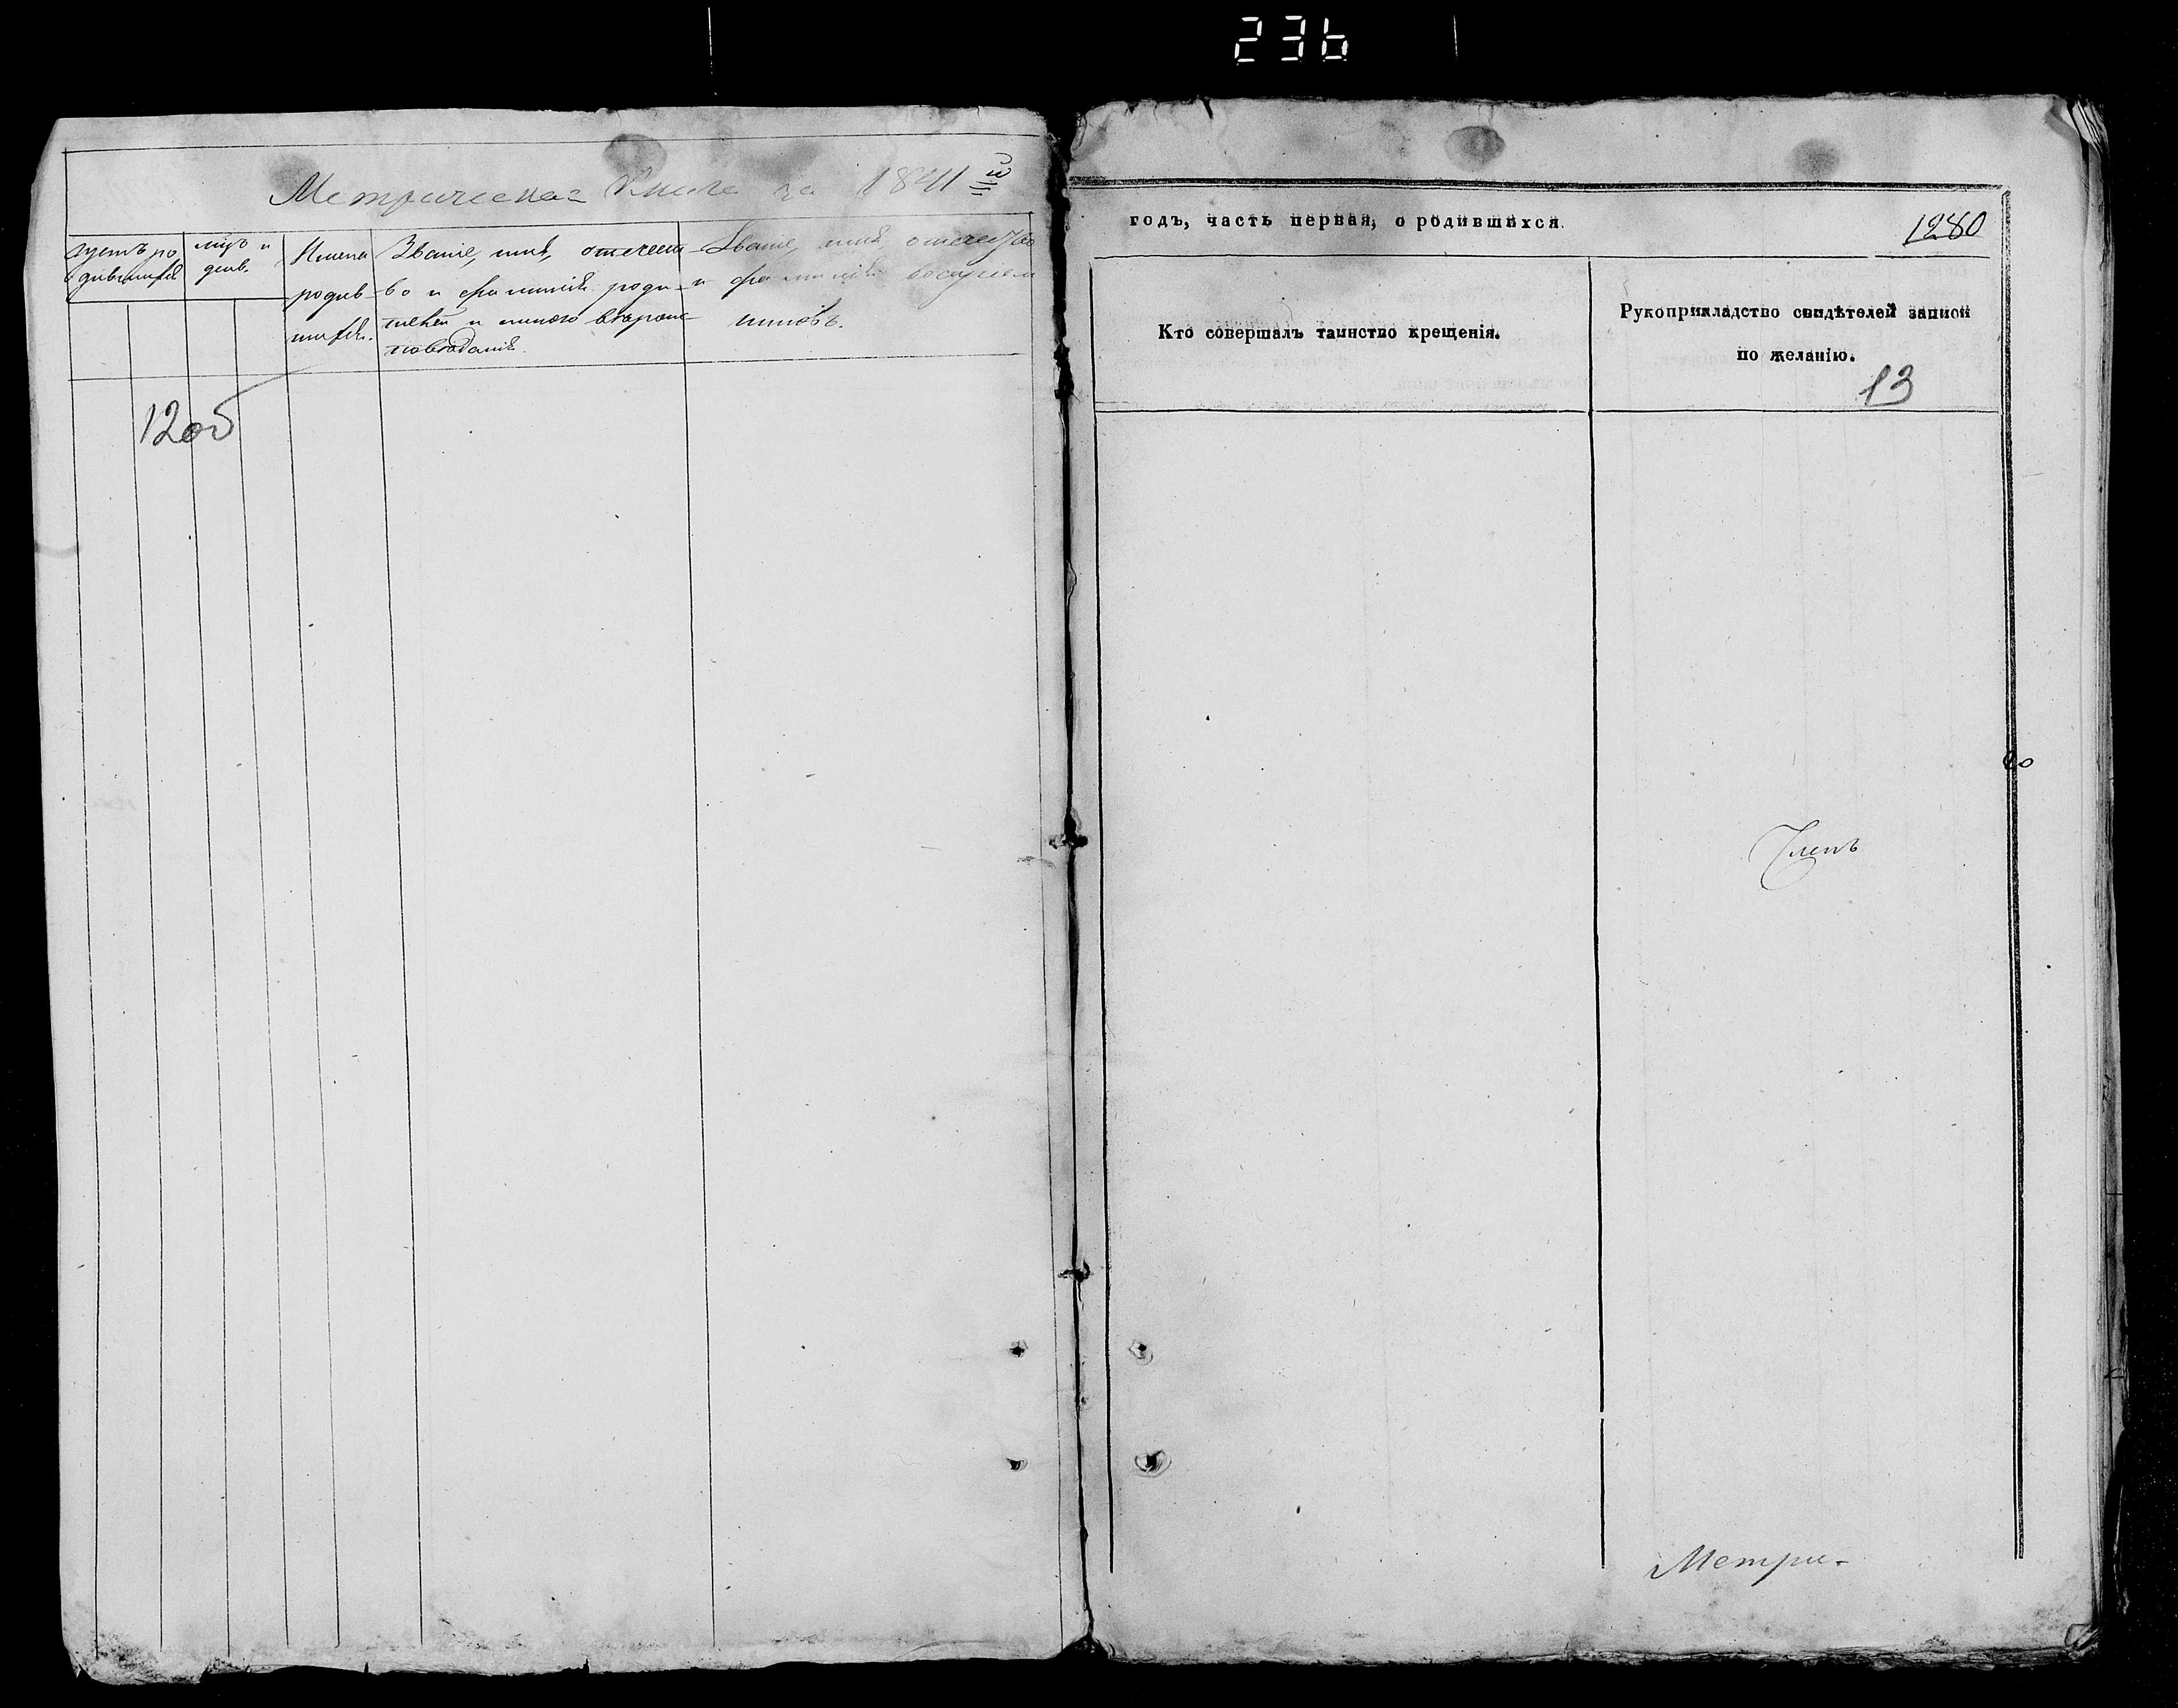 236
Метрическая Книга за 1841 й
Счетъ ро
дившихся
мцъ и
день.
Имена
родив-
шихся.
Званіе, имя, отечест-
во и фамилія роди-
телей и какого вѣроис-
повѣданія.
Званіе, имя, отечество
и фамилія воспріем
никовъ.
1205
годъ, часть первая, о родившихся.
1280
Кто совершалъ таинство крещенія.
Рукоприкладство свидѣтелей записи
по желанію.
13
Членъ
Метри-